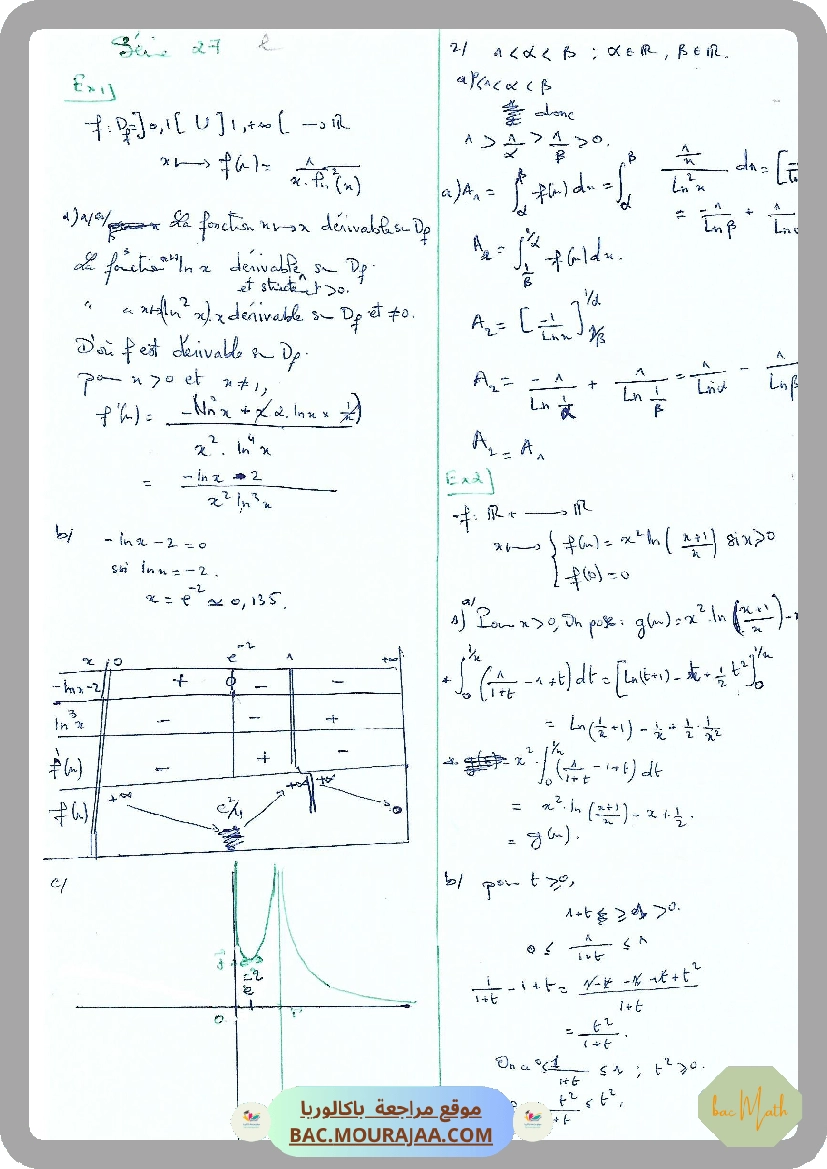 Série 27
Ex1]
f: Df=]0,1[ U ]1,+∞[ → ℝ
x ↦ f(x) = 1/(x.ln²(x))
1) a) La fonction x↦x dérivable sur Df
La fonction x↦ln x dérivable sur Df
et strictement >0.
" x↦(ln²x).x dérivable sur Df et ≠0.
D'où f est dérivable sur Df.
pour x>0 et x≠1,
f'(x) = (-ln²x + 2.lnx × 1/x)/(x².ln⁴x)
= (-lnx-2)/(x² ln³x)
b/ -lnx-2=0
ssi lnx=-2.
x=e⁻² ≃ 0,135.
x 0 e⁻² 1 +∞
-lnx-2 + 0 - -
ln³x - - +
f'(x) - + -
f(x) +∞ e²/4 +∞ +∞ 0
c/
e⁻²
0
2/ 1<α<β ; α∈ℝ, β∈ℝ.
a) 1<α<β
donc
1 > 1/α > 1/β > 0.
a) A₁ = ∫_α^β f(x)dx = ∫_α^β (1/x)/(Ln²x) dx = [
= -1/Lnβ + 1/Lnα
A₂ = ∫_{1/β}^{1/α} f(x)dx.
A₂ = [-1/Lnx]_{1/β}^{1/α}
A₂ = -1/(Ln 1/α) + 1/(Ln 1/β) = 1/Lnα - 1/Lnβ
A₂ = A₁
Ex2]
f: ℝ+ → ℝ
x ↦ { f(x) = x² ln((x+1)/x) si x>0
f(0)=0
1) a/ Pour x>0, On pose: g(x) = x².ln((x+1)/x) -
* ∫_0^{1/x} (1/(1+t) -1+t)dt = [Ln(t+1) - t + 1/2 t²]_0^{1/x}
= Ln(1/x +1) - 1/x + 1/2 . 1/x²
* x².∫_0^{1/x} (1/(1+t) -1+t) dt
= x².ln((x+1)/x) - x + 1/2.
= g(x).
b/ pour t≥0,
1+t ≥ 1 >0.
0 ≤ 1/(1+t) ≤ 1
1/(1+t) -1+t = (1-1-t+t+t²)/(1+t)
= t²/(1+t).
On a 0≤ 1/(1+t) ≤ 1 ; t²≥0.
t²/(1+t) ≤ t².
موقع مراجعة باكالوريا
BAC.MOURAJAA.COM
bac Math